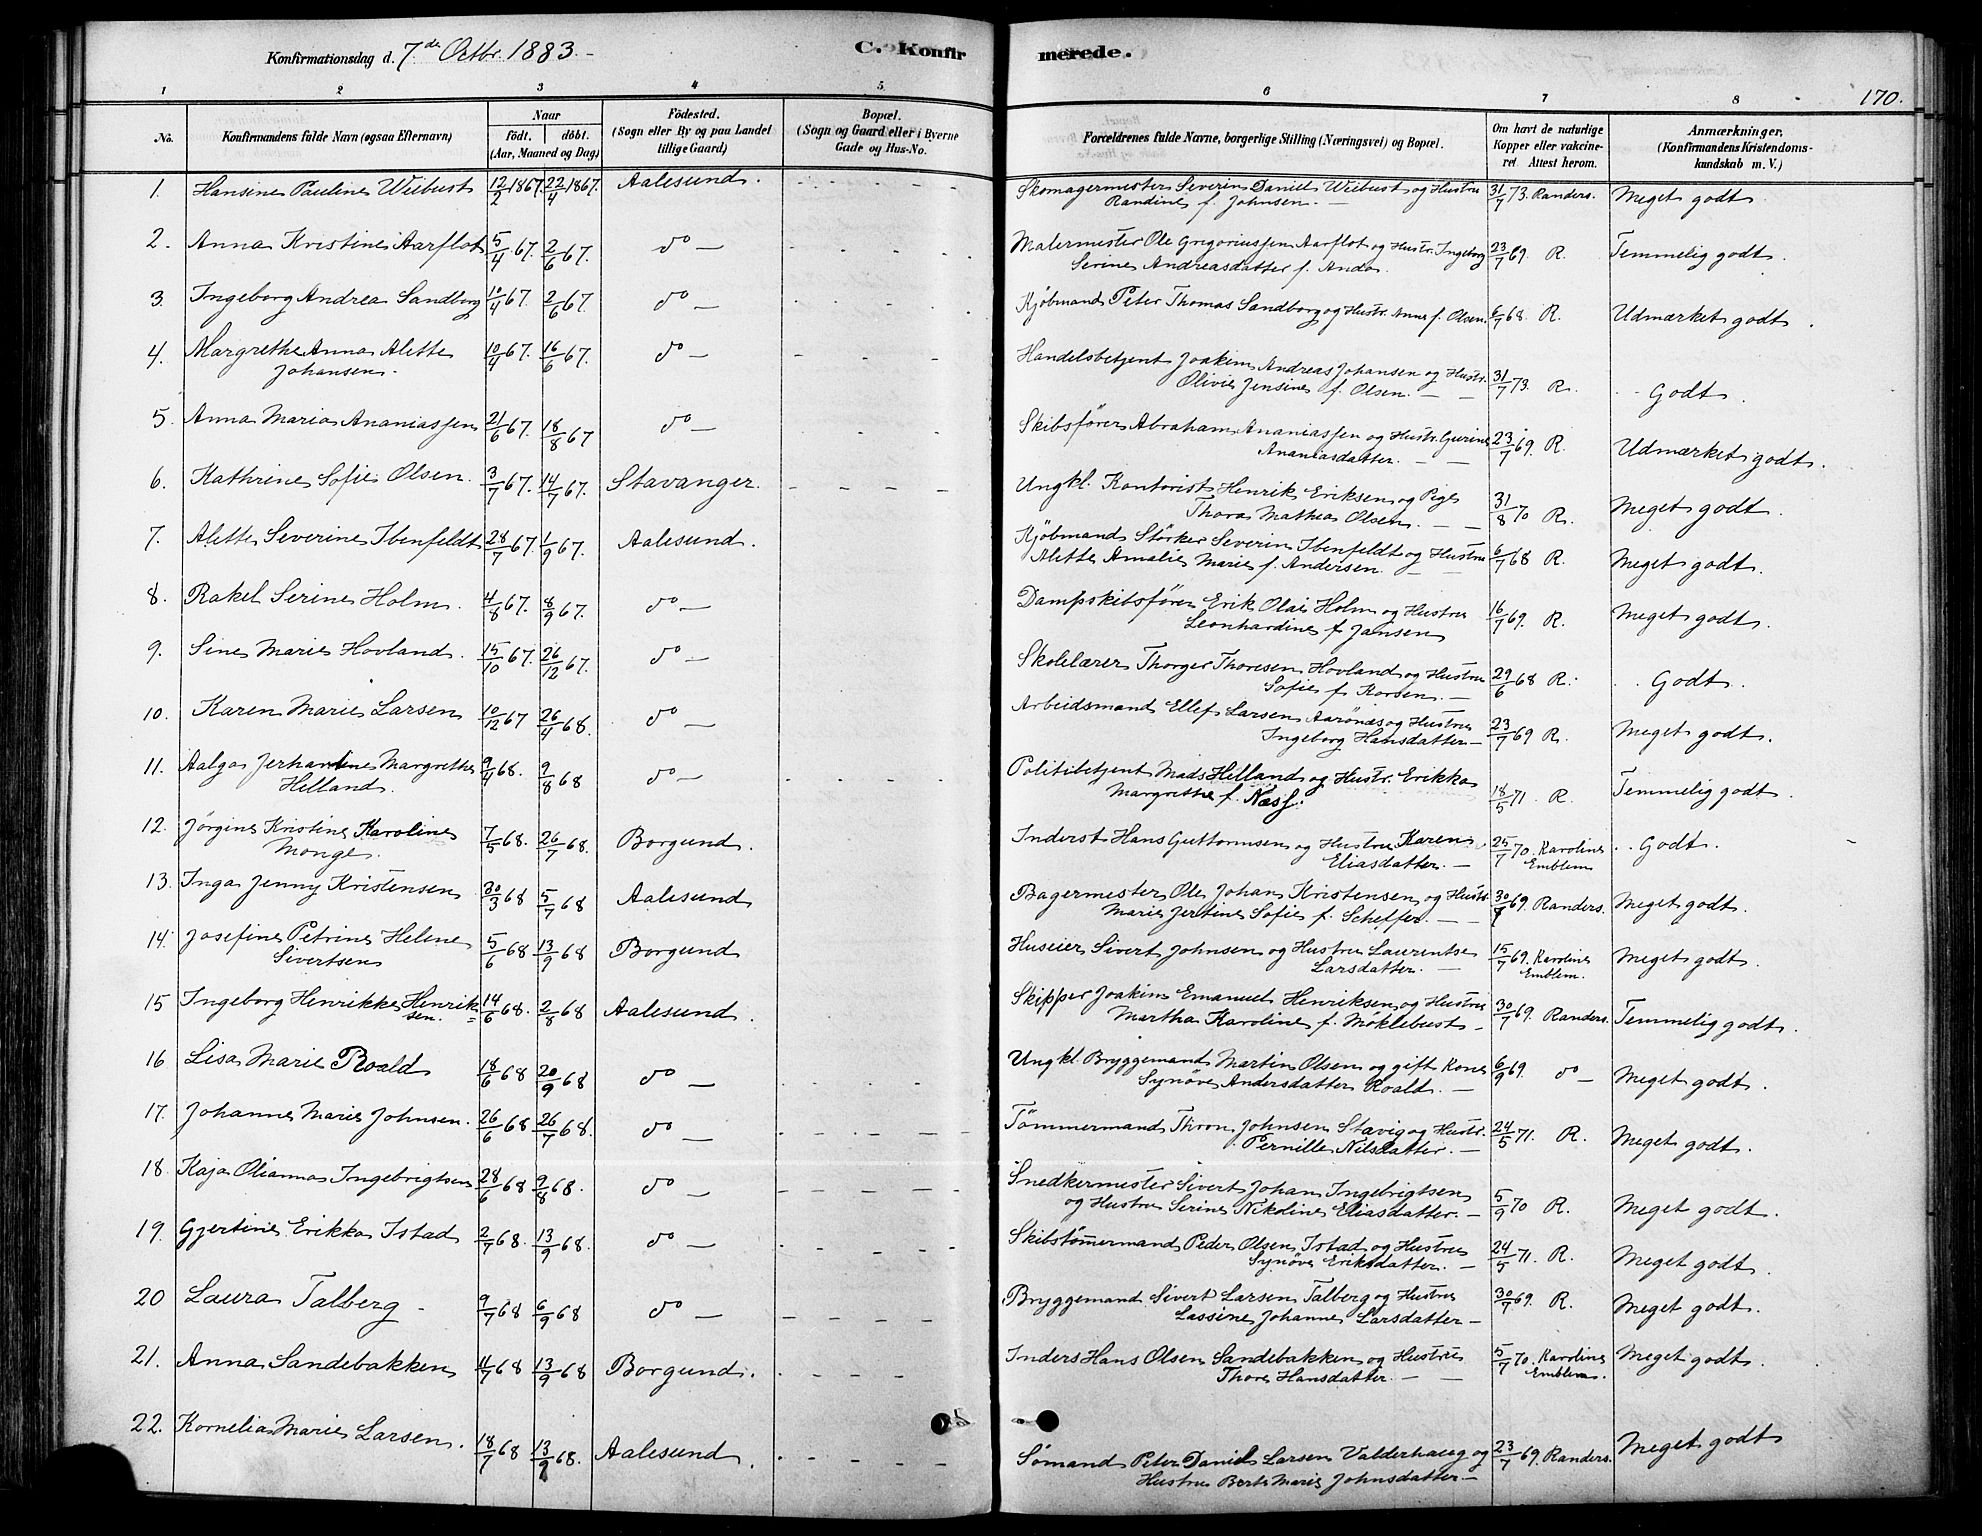 Konfirmationsdag d. 7de Octbr. 1883. –
C. Konfirmerede.
170.
1 2 3 4 5 6 7 8
No. | Konfirmandens fulde Navn (ogsaa Efternavn) | Naar født. døbt. (Aar, Maaned og Dag) | Fødested. (Sogn eller By og paa Landet tillige Gaard) | Bopæl. (Sogn og Gaard eller i Byerne Gade og Hus-No. | Forældrenes fulde Navne, borgerlige Stilling (Næringsvei) og Bopæl. | Om havt de naturlige Kopper eller vakcineret. Attest herom. | Anmærkninger, (Konfirmandens Kristendomskundskab m. V.)
1. Hansine Pauline Wiibust 12/2 1867. 22/4 1867. Aalesund. Skomagermester Severin Daniel Wiibust og Hustru 31/7 73. Randers. Meget godt
Randine f. Johnsen. –
2. Anna Kristine Aarflot 5/4 67. 2/6 67. do – Malermester Ole Gregoriussen Aarflot og Hustr. Ingeborg 23/7 69. R. Temmelig godt.
Serine Andreasdatter f. Andø.
3. Ingeborg Andrea Sandborg 10/4 67. 2/6 67. do – Kjøbmand Peter Thomas Sandborg og Hustr. Anne f. Olsen. 6/7 68. R. Udmærket godt.
4. Margrethe Anna Alette 10/4 67. 16/6 67. do – Handelsbetjent Joakim Andreas Johansen og Hustr. 31/7 73. R. Godt.
Johansen. Olivie Jensine f. Olsen. –
5. Anna Maria Ananiassen 21/6 67. 18/8 67 do – Skibsfører Abraham Ananiassen og Hustr. Gurine 23/7 69. R. Udmærket godt.
Ananiasdatter. –
6. Kathrine Sofie Olsen. 3/7 67. 14/7 67. Stavanger. Ungkl. Kontorist Henrik Eriksen og Pige 31/8 70 R. Meget godt.
Thora Mathea Olsen. –
7. Alette Severine Ibenfeldt 28/7 67. 1/9 67. Aalesund. Kjøbmand Størker Severin Ibenfeldt og Hustru 6/7 68 R. Meget godt.
Alette Amalie Marie f. Andersen. –
8. Rakel Serine Holm. 4/8 67. 8/9 67. do – Dampskibsfører Erik Olai Holm og Hustru 16/7 69. R. Meget godt.
Leonhardine f. Jansen
9. Sine Marie Hovland. 15/10 67. 26/12 67. do – Skolelærer Thorger Thoresen Hovland og Hustru 29/6 68 R. Godt.
Sofie f. Korsen. –
10. Karen Marie Larsen 10/12 67 26/4 68. do – Arbeidsmand Ellef Larsen Aarønæs og Hustru 23/7 69 R. Meget godt.
Ingeborg Hansdatter –
11. Aalga Jerhantine Margrethe 9/4 68. 9/8 68 do – Politibetjent Mads Helland og Hustr. Erikka 18/5 71. R. Temmelig godt.
Helland. Margrethe f. Næss.
12. Jørgine Kristine Karoline 7/5 68. 26/7 68. Borgund. Inderst Hans Guttormsen og Hustru Karen 25/7 70. Karoline Emblem Godt.
Monge. Eliasdatter. –
13. Inga Jenny Kristensen 30/3 68 5/7 68 Aalesund Bagermester Ole Johan Kristensen og Hustr. 30/7 69. Randers. Meget godt.
Marie Jertine Sofie f. Scheffer. –
14. Josefine Petrine Helene 5/6 68 13/9 68 Borgund Huseier Sivert Johnsen og Hustru Laurentse 15/7 69. Karoline Emblem. Meget godt.
Sivertsen Larsdatter. –
15 Ingeborg Henrikke Henriksen. 14/6 68. 2/8 68 Aalesund. Skipper Joakim Emanuel Henriksen og Hustru 30/7 69. Randers. Temmelig godt.
Martha Karoline f. Møklebust –
16 Lisa Marie Roald 18/6 68 20/9 68 do – Ungkl. Bryggemand Martin Olsen og gift Kone 6/9 69. do – Meget godt.
Synøve Andersdatter Roald. –
17. Johanne Marie Johnsen. 26/6 68 26/7 68. do – Tømmermand Thron Johnsen Stavig og Hustr. 24/5 71. R. Meget godt.
Pernille Nilsdatter. –
18. Kaja Olianna Ingebrigtsen 28/6 68 9/8 68. do – Snedkermester Sivert Johan Ingebrigtsen 5/9 70 R. Meget godt.
og Hustru Serine Nikoline Eliasdatter. –
19. Gjertine Erikka Istad 2/7 68. 13/9 68. do – Skibstømmermand Peder Olsen Istad og Hustru 24/5 71. R. Meget godt.
Synøve Eriksdatter. –
20 Laura Talberg 9/7 68 6/9 68 do – Bryggemand Sivert Larsen Talberg og Hustru 30/7 69. R. Meget godt.
Lassine Johanne Larsdatter –
21. Anna Sandebakken 11/7 68 13/9 68 Borgund. Inders Hans Olsen Sandebakken og Hustru 5/7 70. Karoline Emblem. Meget godt.
Thore Hansdatter. –
22. Kornelia Marie Larsen. 18/7 68 13/9 68. Aalesund. Sømand Peter Daniel Larsen Valderhaug og 23/7 69. Randers. Meget godt
Hustru Berte Marie Johnsdatter –